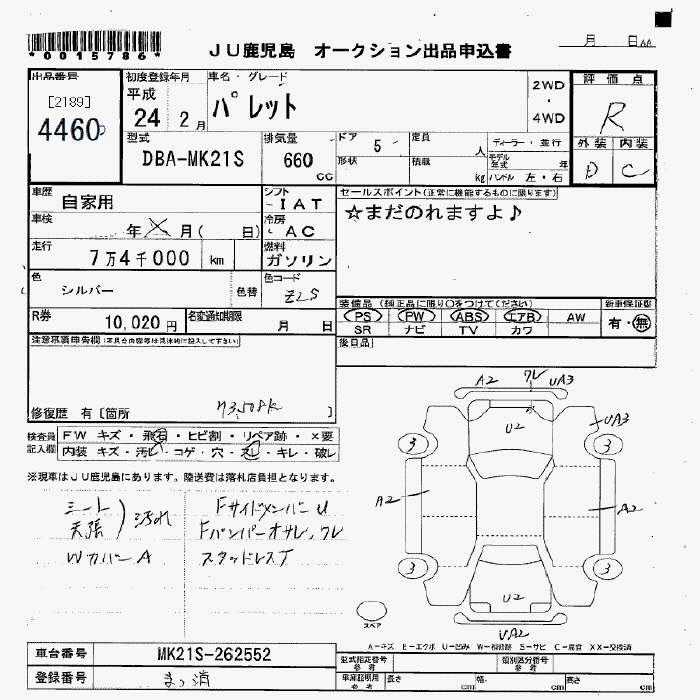 *0015786*
JU鹿児島 オークション出品申込書
月 日
出品番号
[2189]
4460
初度登録年月
平成
24 2月
車名・グレード
パレット
2WD
・
4WD
評価点
R
外装 内装
D C
型式
DBA-MK21S
排気量
660
CC
ドア 5
形状
定員
人
積載
kg
ディーラー・並行
モデル年式 年
ハンドル 左・右
車歴
自家用
シフト
IAT
車検
年 X 月( 日)
冷房
AC
走行
7万4千000 km
燃料
ガソリン
セールスポイント(正常に機能するものに限ります)
☆まだのれますよ♪
色
シルバー
色替
色コード
Z2S
R券
10,020円
名変通知期限
月 日
装備品(純正品に限り○をつけてください)
PS PW ABS エアB AW
SR ナビ TV カワ
新車保証書
有・無
後日品
注意事項申告欄(不具合内容等は具体的に記入して下さい)
修復歴 有[箇所 ]
検査員記入欄
FW キズ・飛石・ヒビ割・リペア跡・X要
内装 キズ・汚れ・コゲ・穴・スレ・キレ・破レ
※現車はJU鹿児島にあります。陸送費は落札店負担となります。
シート
天張
)汚れ
WカバーA
FサイドメンバーU
Fバンパーオサレ、ワレ
スタッドレスT
A2 ワレ UA3
U2
UA3
3 3
A2 A2
3 3
U2
UA2
スペア
A-キズ E-エクボ U-凹み W-補修跡 S-サビ C-腐食 XX-交換済
車台番号 MK21S-262552
登録番号 まっ消
型式指定番号
参考
類別区分番号
参考
車庫証明用
参考
長さ cm 幅 cm 高さ cm